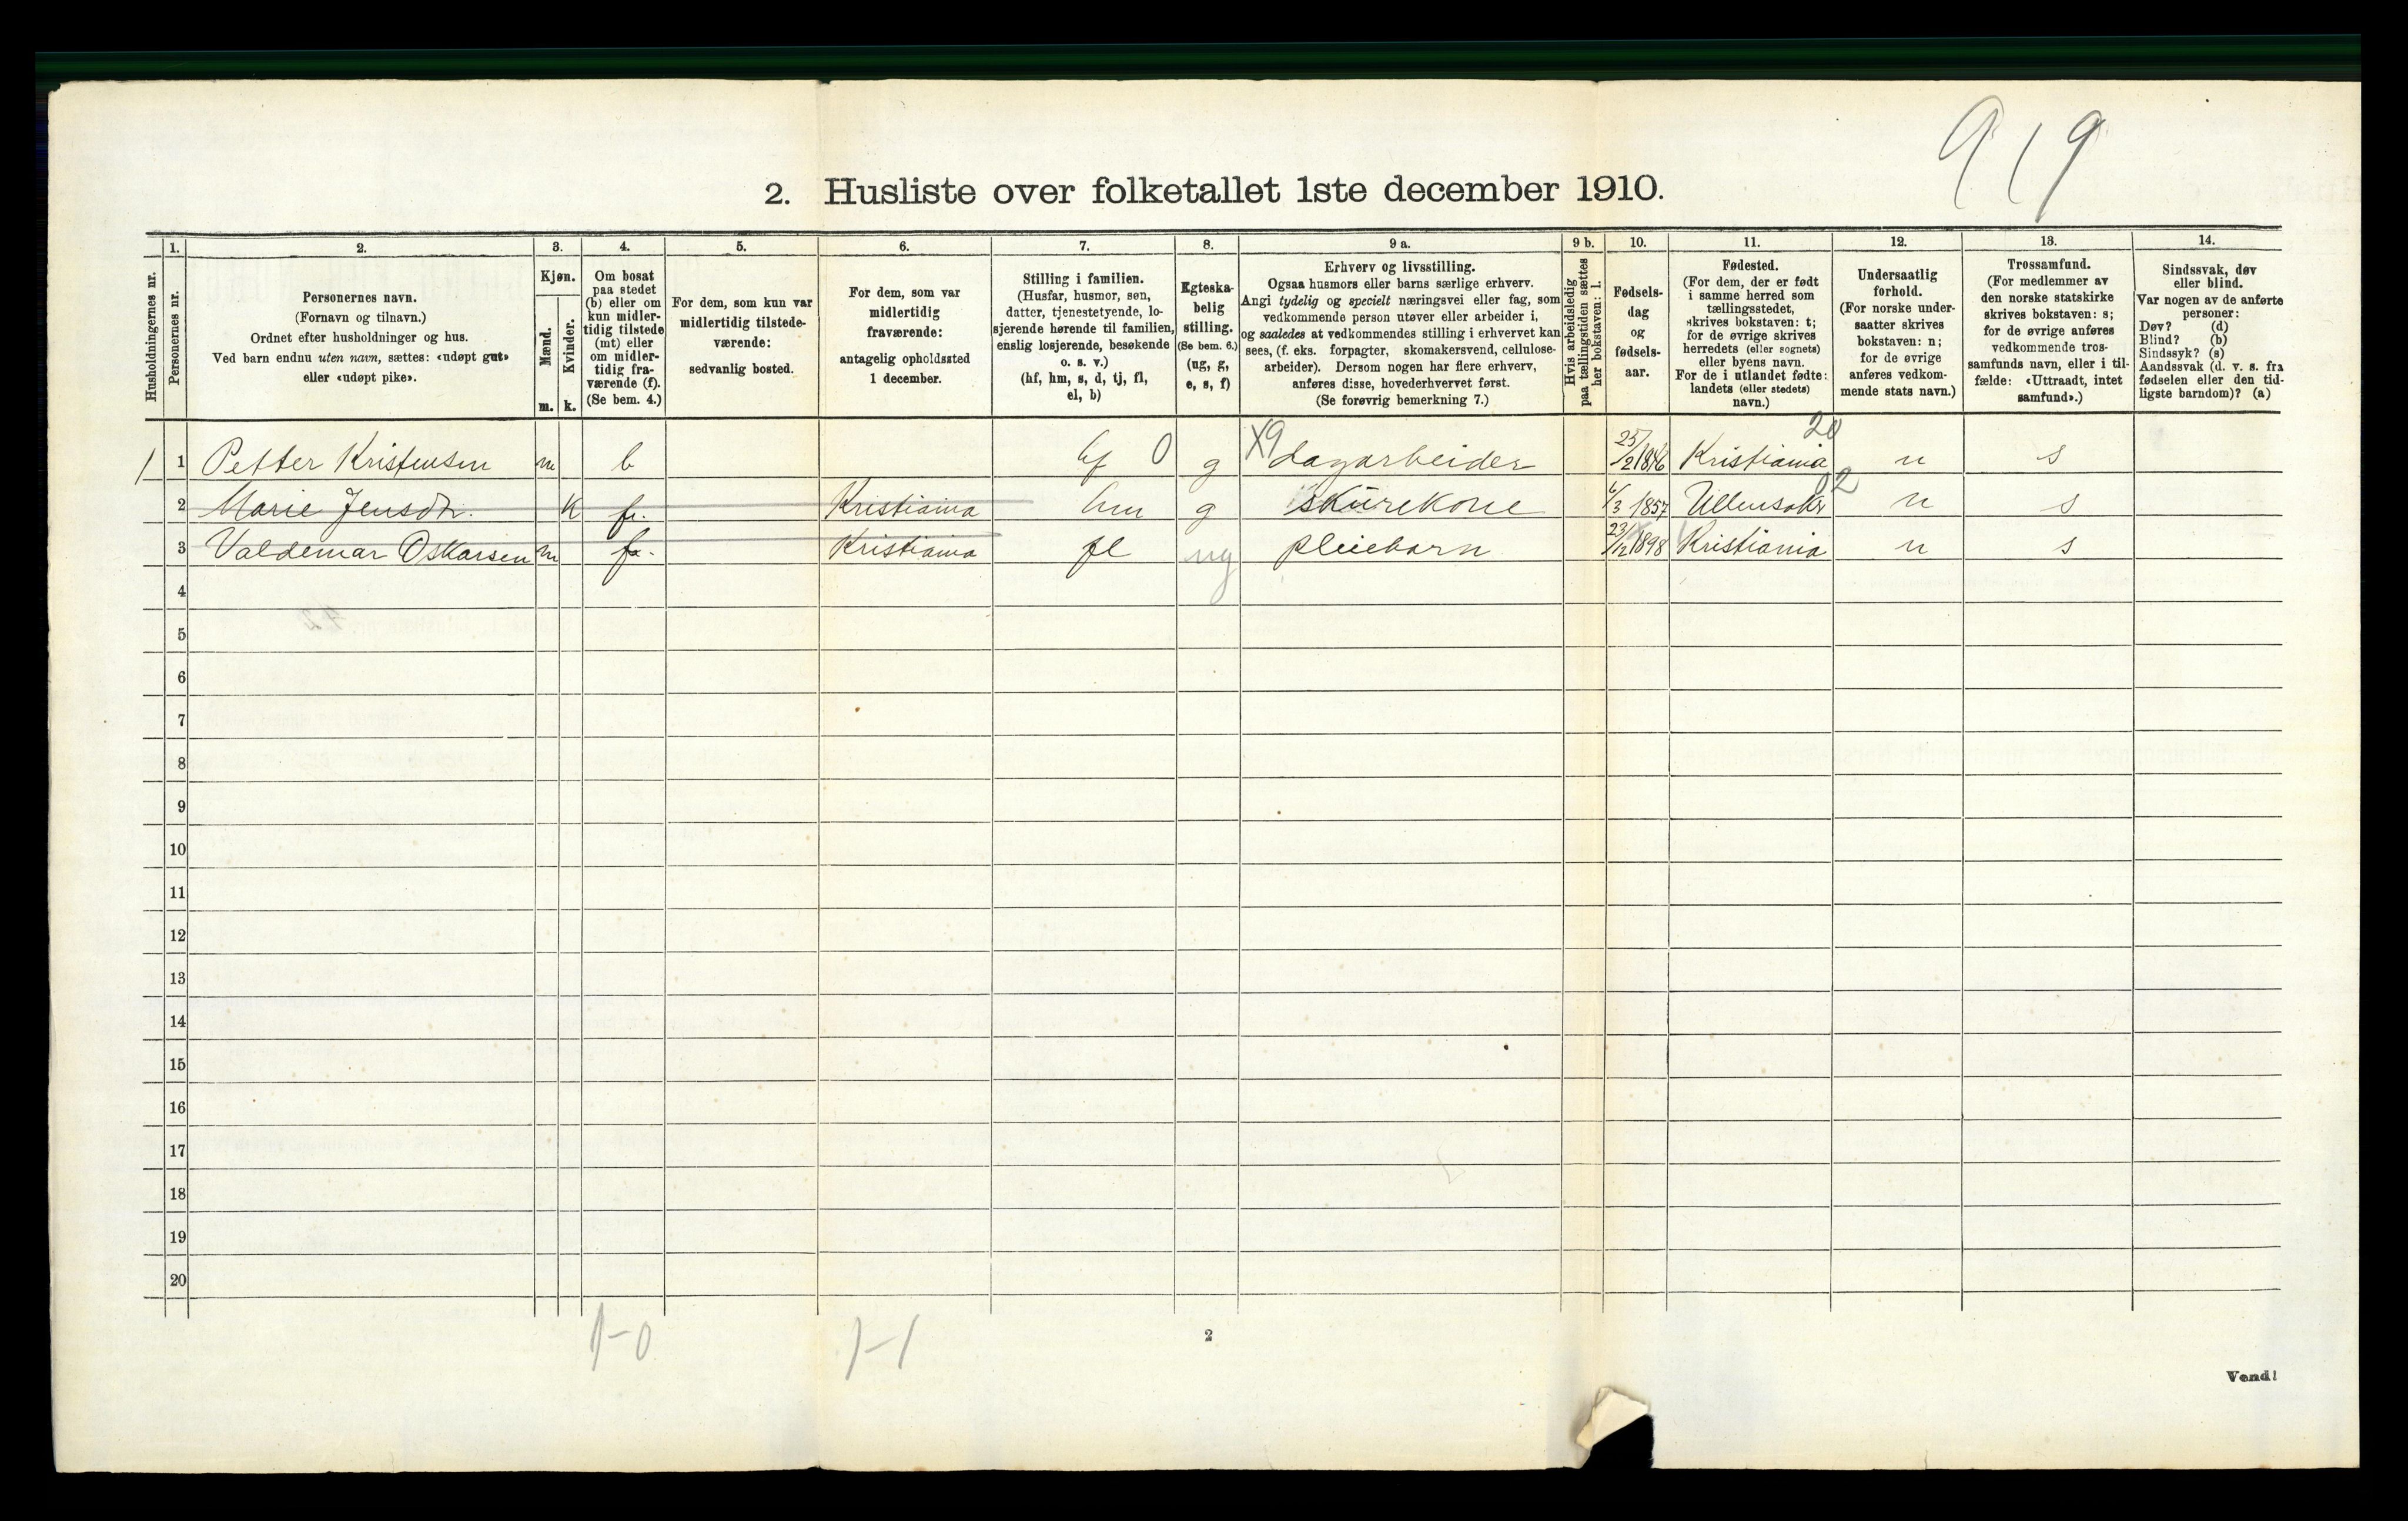 919
2. Husliste over folketallet 1ste december 1910.
Husholdningernes nr.
1.
Personernes nr.
2.
Personernes navn.
(Fornavn og tilnavn.)
Ordnet efter husholdninger og hus.
Ved barn endnu uten navn, sættes: «udøpt gut»
eller «udøpt pike».
3.
Kjøn.
Mænd.
m.
Kvinder.
k.
4.
Om bosat
paa stedet
(b) eller om
kun midler-
tidig tilstede
(mt) eller
om midler-
tidig fra-
værende (f).
(Se bem. 4.)
5.
For dem, som kun var
midlertidig tilstede-
værende:
sedvanlig bosted.
6.
For dem, som var
midlertidig
fraværende:
antagelig opholdssted
1 december.
7.
Stilling i familien.
(Husfar, husmor, søn,
datter, tjenestetyende, lo-
sjerende hørende til familien,
enslig losjerende, besøkende
o. s. v.)
(hf, hm, s, d, tj, fl,
el, b)
8.
Egteska-
belig
stilling.
(Se bem. 6.)
(ug, g,
e, s, f)
9 a.
Erhverv og livsstilling.
Ogsaa husmors eller barns særlige erhverv.
Angi tydelig og specielt næringsvei eller fag, som
vedkommende person utøver eller arbeider i,
og saaledes at vedkommendes stilling i erhvervet kan
sees, (f. eks. forpagter, skomakersvend, cellulose-
arbeider). Dersom nogen har flere erhverv,
anføres disse, hovederhvervet først.
(Se forøvrig bemerkning 7.)
9 b.
Hvis arbeidsledig
paa tællingstiden sættes
her bokstaven: l.
10.
Fødsels-
dag
og
fødsels-
aar.
11.
Fødested.
(For dem, der er født
i samme herred som
tællingsstedet,
skrives bokstaven: t;
for de øvrige skrives
herredets (eller sognets)
eller byens navn.
For de i utlandet fødte:
landets (eller stedets)
navn.)
12.
Undersaatlig
forhold.
(For norske under-
saatter skrives
bokstaven: n;
for de øvrige
anføres vedkom-
mende stats navn.)
13.
Trossamfund.
(For medlemmer av
den norske statskirke
skrives bokstaven: s;
for de øvrige anføres
vedkommende tros-
samfunds navn, eller i til-
fælde: «Uttraadt, intet
samfund».)
14.
Sindssvak, døv
eller blind.
Var nogen av de anførte
personer:
Døv? (d)
Blind? (b)
Sindssyk? (s)
Aandssvak (d. v. s. fra
fødselen eller den tid-
ligste barndom)? (a)
1 1 Petter Kristensen m b hf 0 g X9 Dagarbeider 25/2 Kristiania 20 n s
2 Marie Jensdtr. k fr. Kristiania hm g skurekone 6/3 1857 Ullensaker 02 n s
3 Valdemar Oskarsen m fr. Kristiania fl ug pleiebarn 23/12 1898 Kristiania n s
4
5
6
7
8
9
10
11
12
13
14
15
16
17
18
19
20
1-0 1-1
2
Vend!